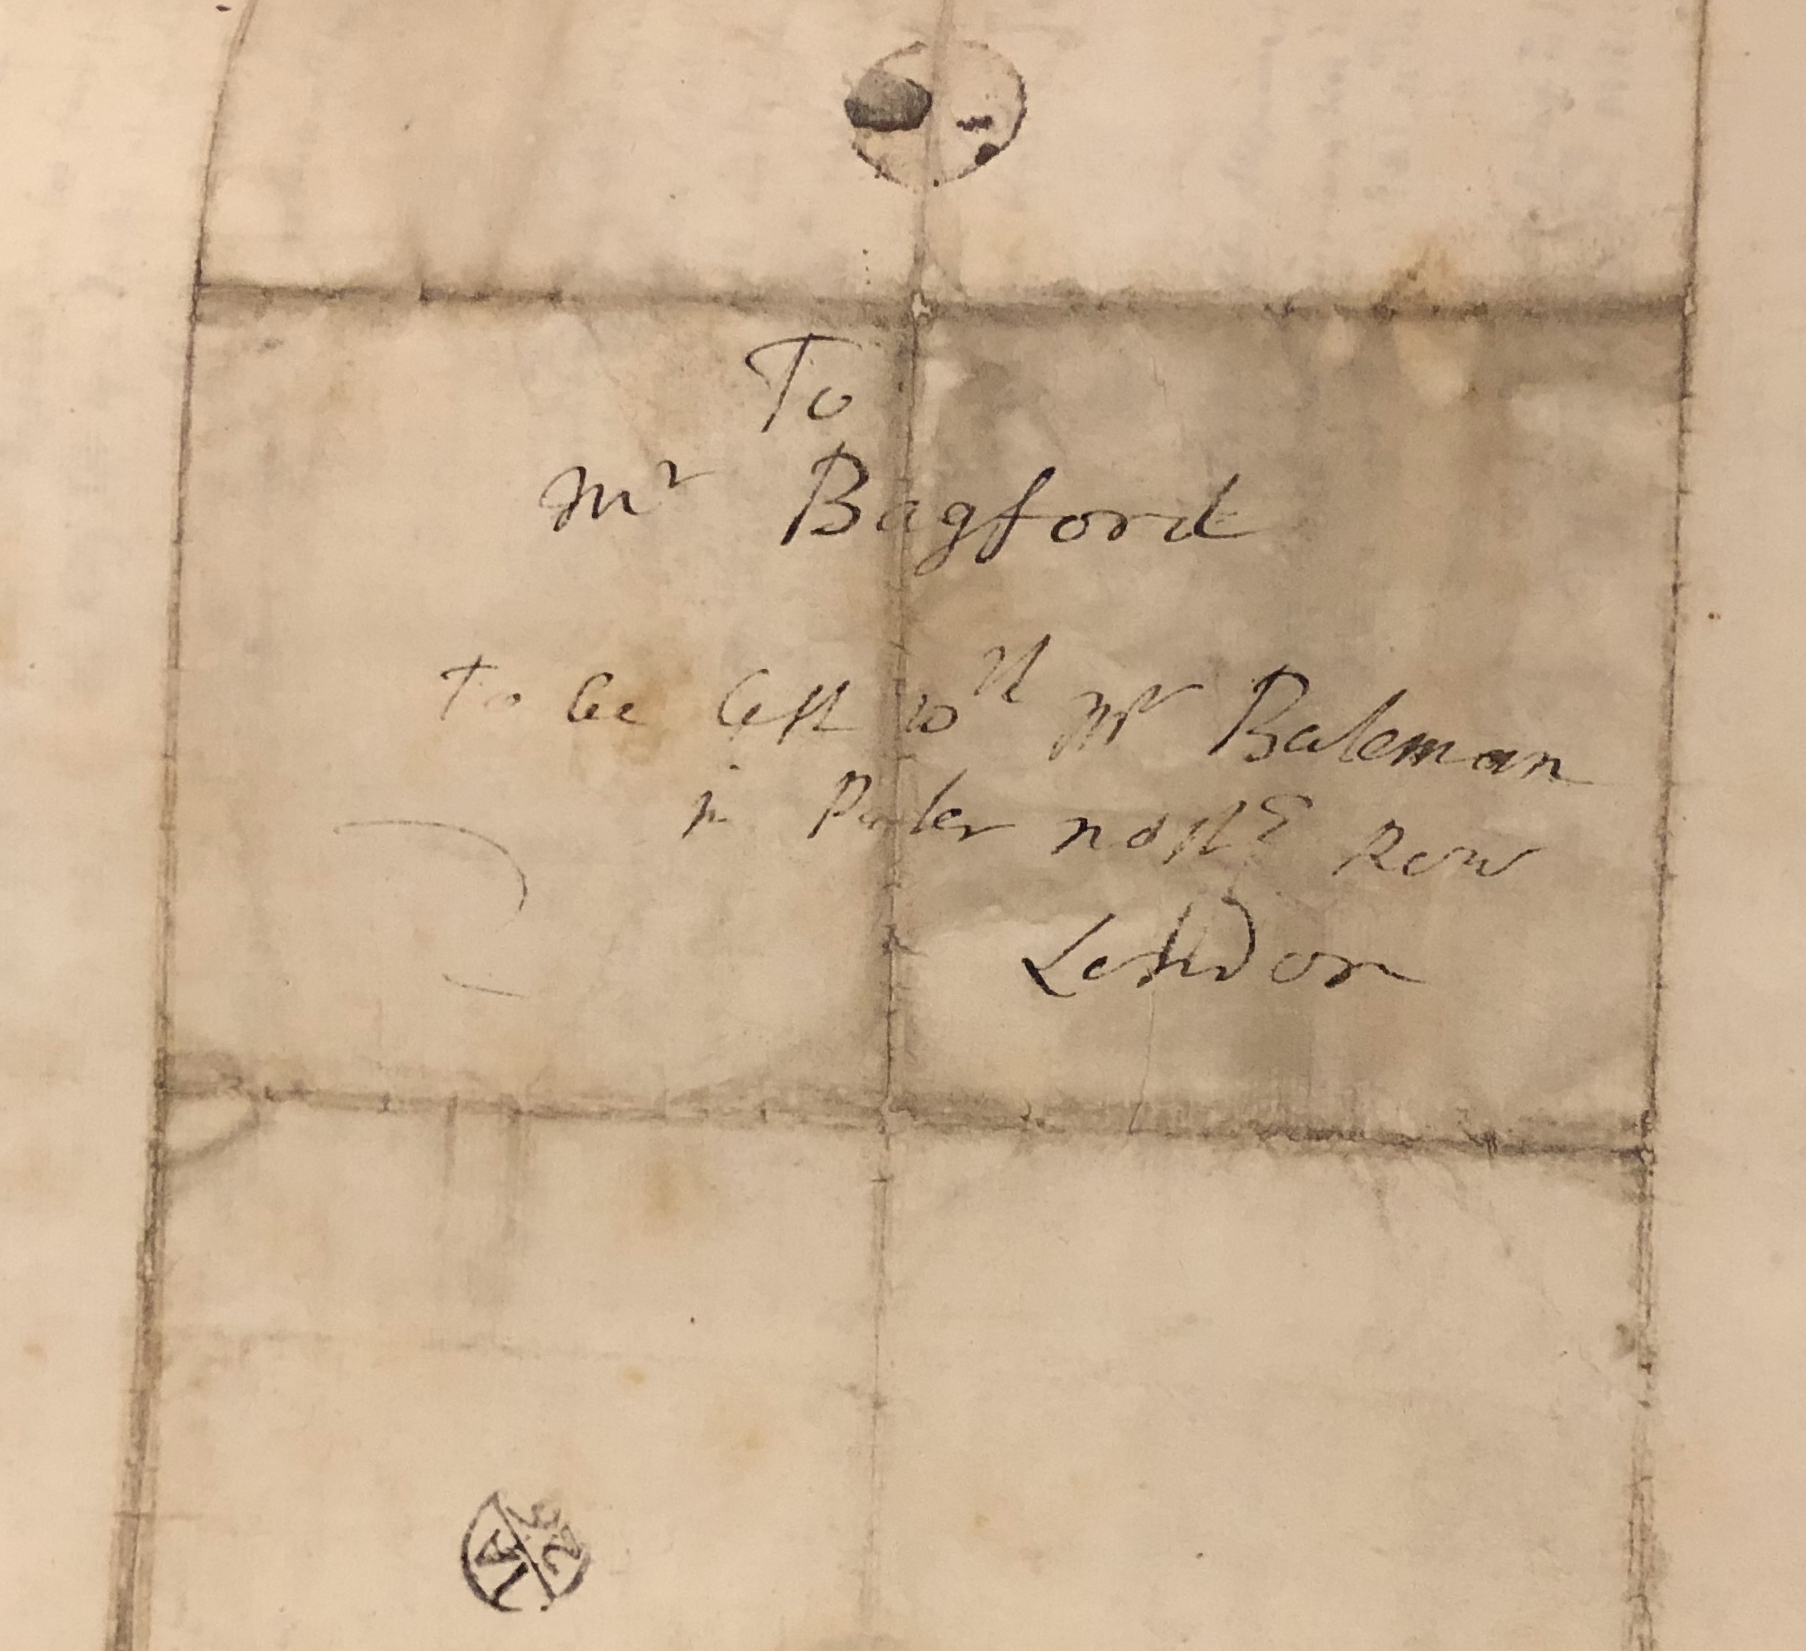 To
Mr Bagford
To be left wth Mr Bateman
in Pater nostr Row
London
IA
23